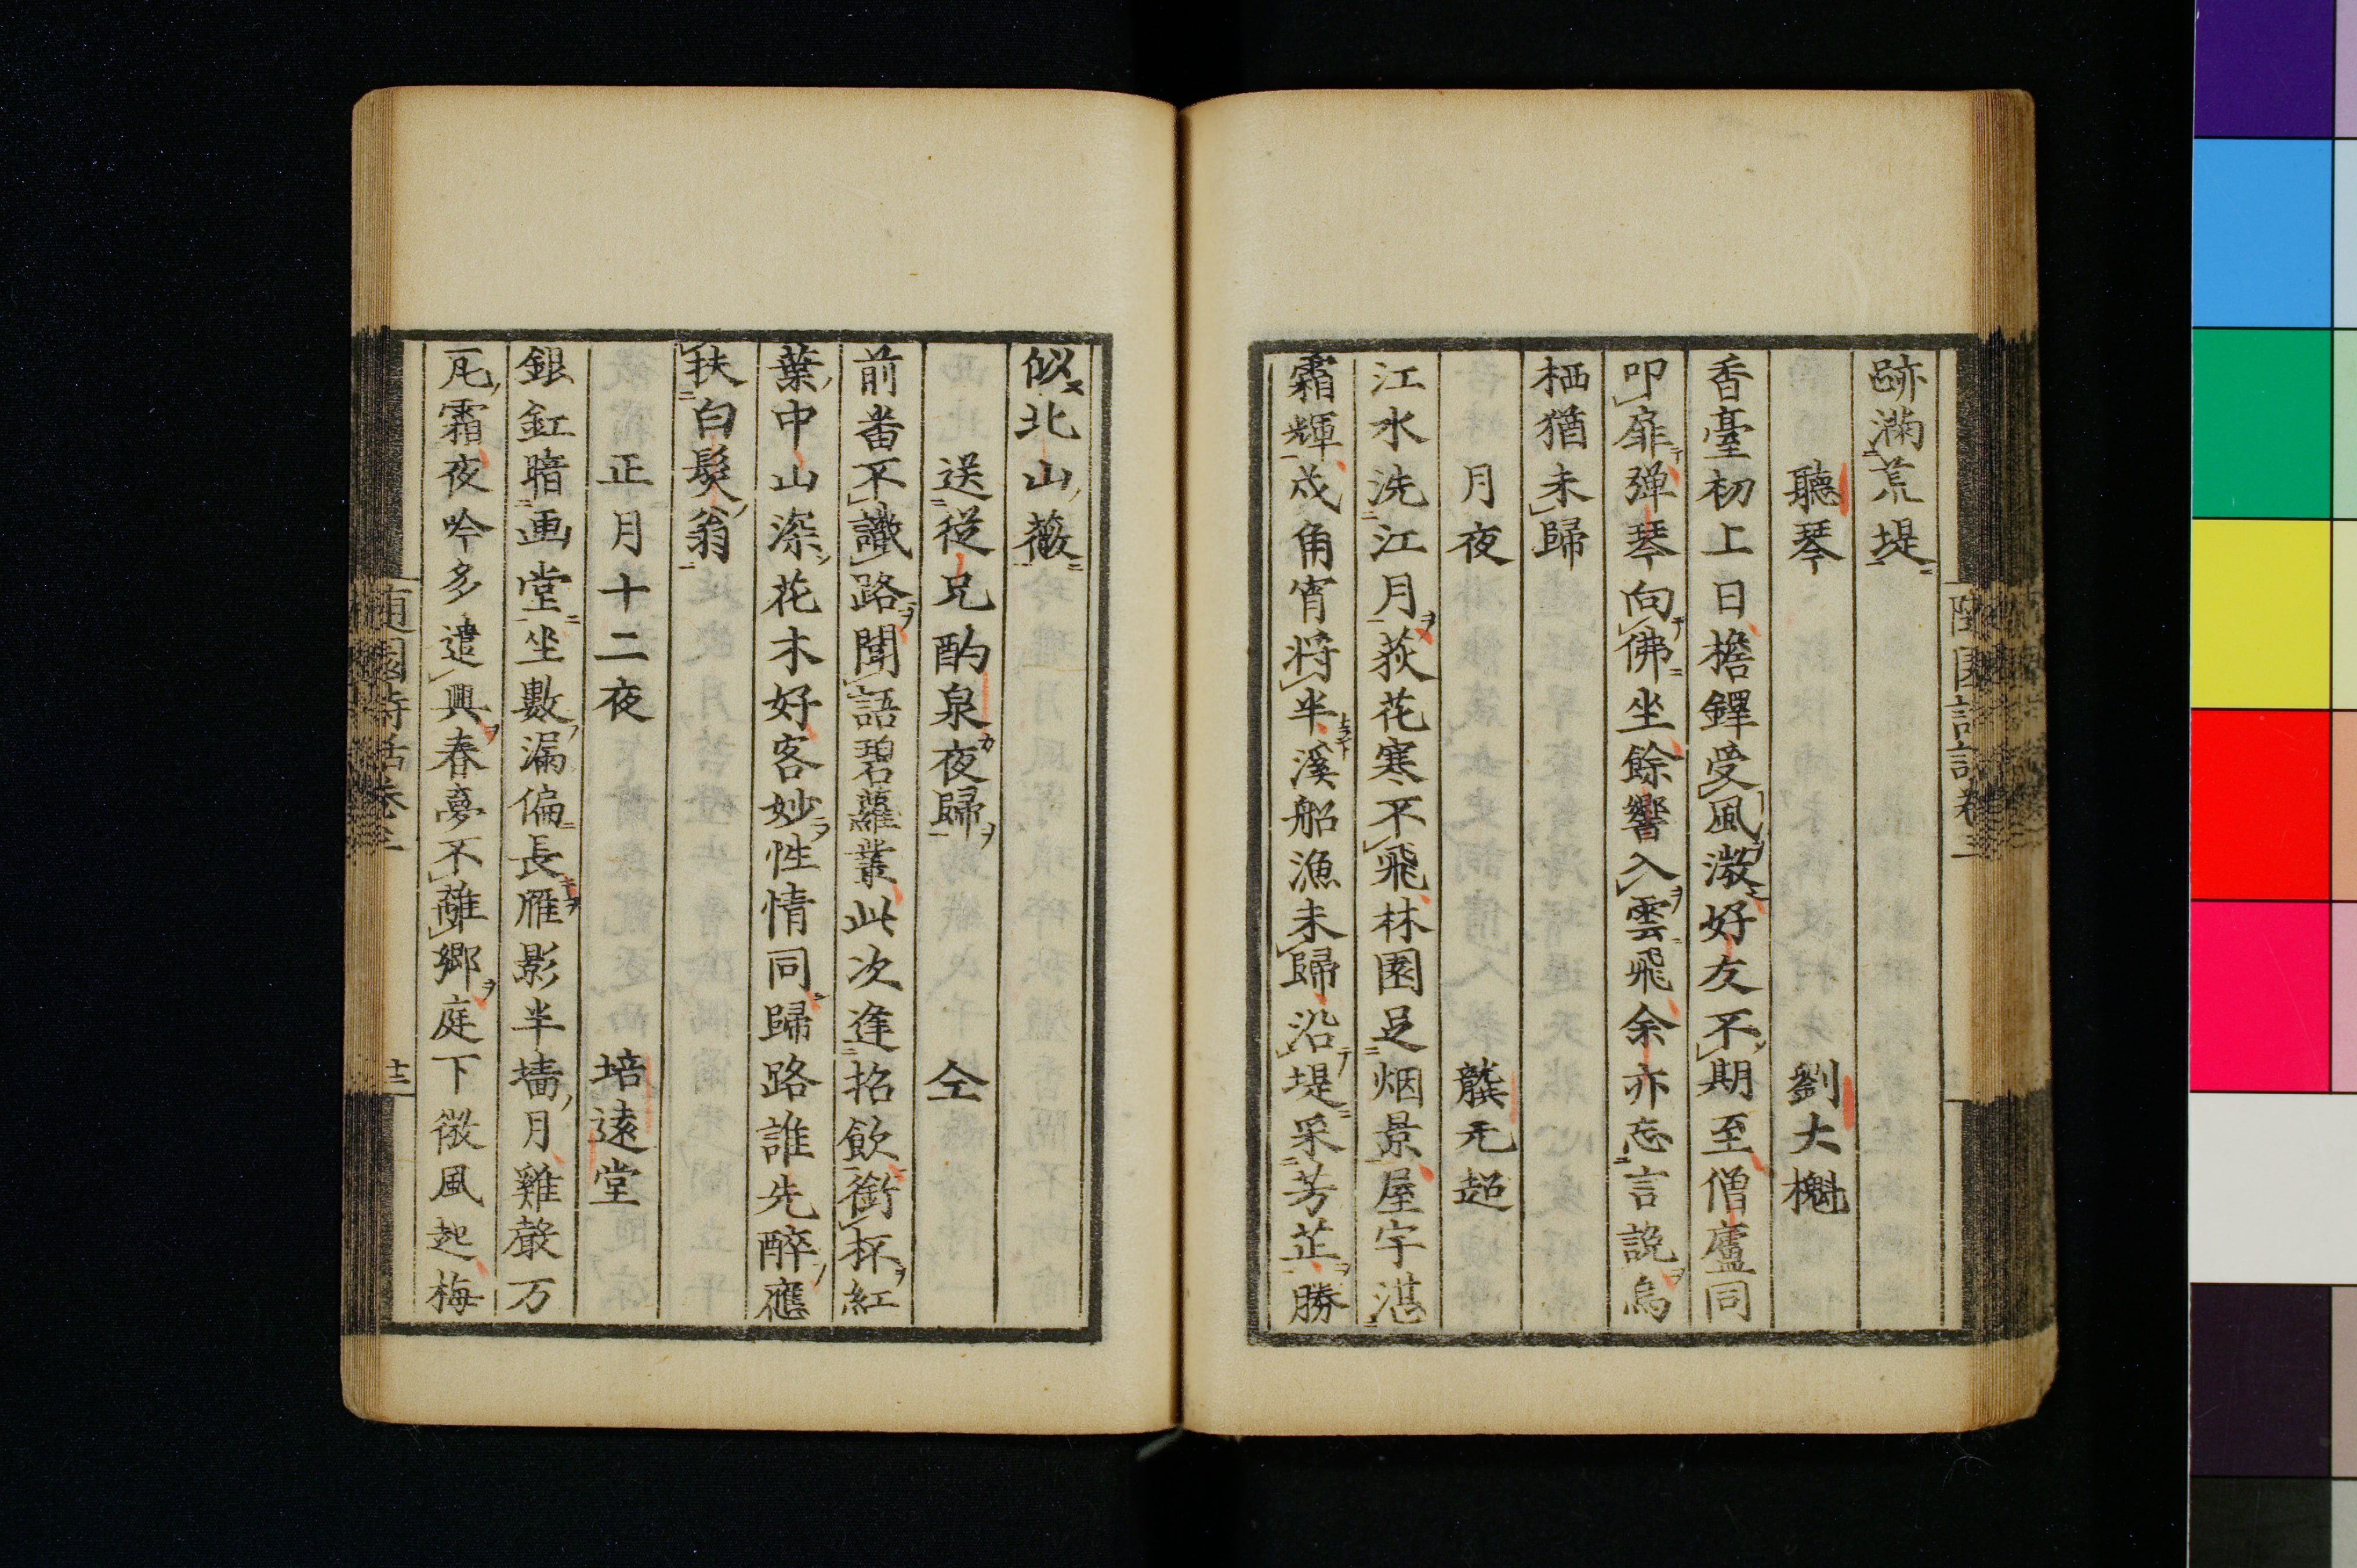 跡滿荒堤
聽琴 劉大櫆
香臺初上日檐鐸受風激好友不期至僧廬同
叩扉弾琴向佛坐餘響入雲飛余亦忘言說烏
栖猶未歸
月夜 龔元超
江水洗江月荻花寒不飛林園足烟景屋宇湛
霜輝戍角宵将半溪船漁未歸沿堤采芳芷勝
似北山薇
送従兄酌泉夜歸 仝
前番不識路聞語碧蘿叢此次逢招飲銜杯紅
葉中山深花木好客妙性情同歸路誰先醉應
扶白髮翁
正月十二夜 培遠堂
銀釭暗画堂坐數漏偏長雁影半墻月雞聲万
瓦霜夜吟多遣興春夢不離郷庭下微風起梅
隨園詩話卷三
十三